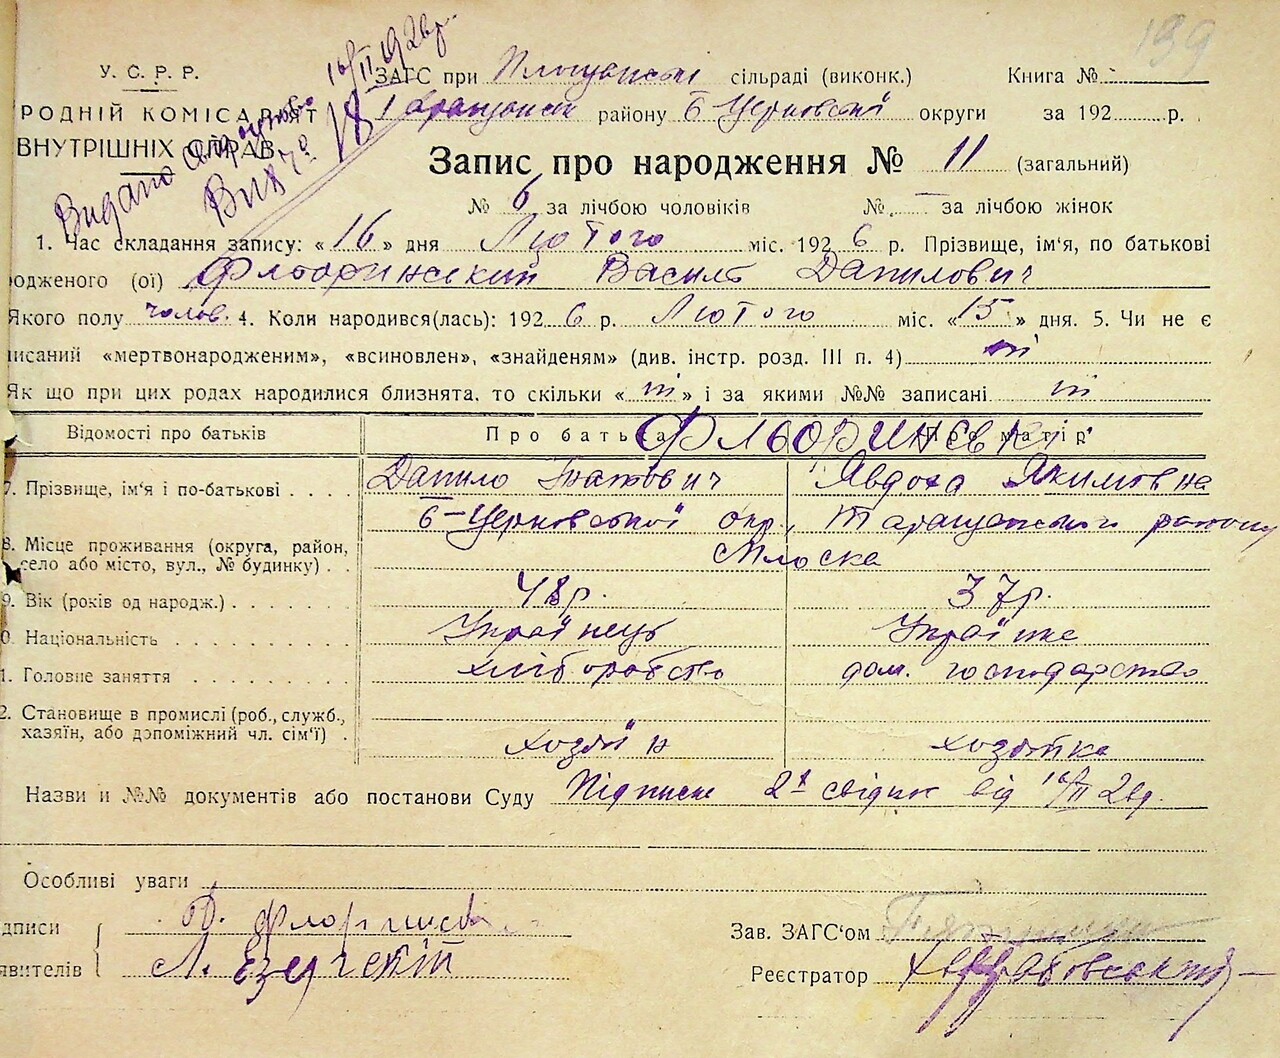 199
У. С. Р. Р.
РОДНІЙ КОМІСАРІЯТ
ВНУТРІШНІХ СПРАВ
Видано
Вик
№ 18
16/II 1926р.
ЗАГС при сільраді (виконк.)
району Б Церковської округи
Книга №
за 192 р.
Запис про народження № 11 (загальний)
№ 6 за лічбою чоловіків № — за лічбою жінок
1. Час складання запису: « 16 » дня Лютого міс. 192 6 р. Прізвище, ім'я, по батькові
одженого (ої) Флоринський Василь Данилович
Якого полу чолов. 4. Коли народився(лась): 192 6 р. Лютого міс. « 15 » дня. 5. Чи не є
писаний «мертвонародженим», «всиновлен», «знайденям» (див. інстр. розд. III п. 4) ні
Як що при цих родах народилися близнята, то скільки « ні » і за якими №№ записані ні
Відомості про батьків Про батька Про матір
ФЛЬОРИНСЬКІ
7. Прізвище, ім'я і по-батькові Данило Гнатович Явдоха Якимовна
Б-Церковської окр., Таращанського району
8. Місце проживання (округа, район, село або місто, вул., № будинку) Плоска
9. Вік (років од народж.) 48р. 37р.
0. Національність Українець Українка
1. Головне заняття хліборобство дом. господарство
2. Становище в промислі (роб., служб., хазяїн, або допоміжний чл. сім'ї) хозяїн хозяйка
Назви и №№ документів або постанови Суду Підписка 2х свідків від 16/II 26р.
Особливі уваги
дписи Д. Флоринский
явителів Л.
Зав. ЗАГС'ом
Реєстратор